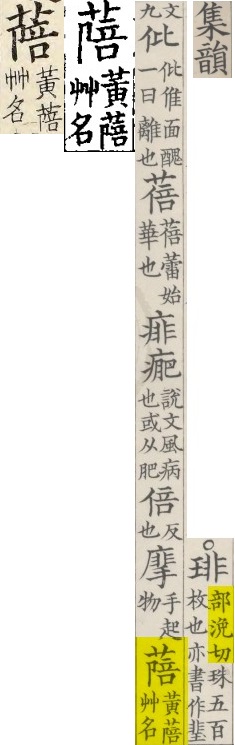 集韻
○琲部浼切珠五百枚也亦書作
文九
仳仳倠面醜一曰離也
蓓蓓蕾始華也
痱說文風病也或从肥
倍反也
手起物
蓓黃蓓艸名
蓓黃蓓艸名
蓓黃蓓艸名